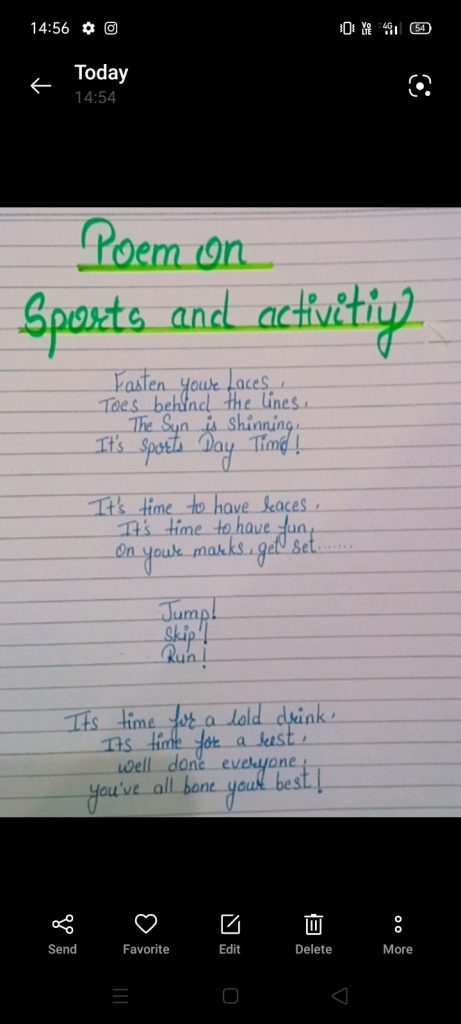 14:56
Vo LTE 4G 54
Today
14:54
Poem on
Sports and activitiy
Fasten your Laces,
Toes behind the lines.
The Sun is shinning,
It's sports Day Time!
It's time to have races,
It's time to have fun,
On your marks, get set.......
Jump!
Skip!
Run!
Its time for a cold drink,
Its time for a rest,
well done everyone,
you've all bone your best!
Send Favorite Edit Delete More